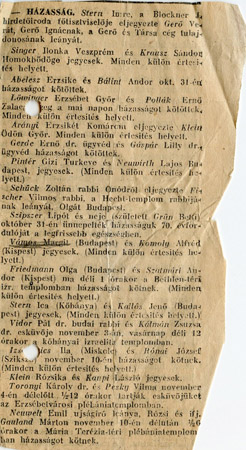 — HÁZASSÁG. Stern Imre, a Blockner
hirdetőiroda főtisztviselője eljegyezte Gerő
rát, Gerő Ignácnak, a Gerő és Társa cég tulaj-
donosának leányát.
Singer Ilonka Veszprém és Krausz Sándor
Homokbödöge jegyesek. Minden külön értesí-
tés helyett.
Abelesz Erzsike és Bálint Andor okt. 31-én
házasságot kötöttek.
Erzsébet Győr és Pollák Ernő
Zalaeg a mai napon házasságot kötöttek.
Minden külön értesítés helyett.)
Erzsikét Komárom eljegyezte Klein
Ödön Győr. Minden külön értesítés helyett.
Gerde Ernő dr. ügyvéd és Gáspár Lilly dr.
ügyvéd házasságot kötöttek.
Pintér Gizi Turkeve és Neuwirth Lajos Bu-
dapest, jegyesek. (Minden külön értesítés he-
lyett.)
Schück Zoltán rabbi Ónódról eljegyezte
Vilmos rabbi, a Hegb-templom rabbijá-
nak leányát, Olgát Budapest.
Lipót és neje (született Grün Betti)
október 31-én ünnepelték házaságuk 70. évfor-
dulóját a legfrissebb egészségben.
Vámos Margit (Budapest) és Komoly Alfréd
(Kispest) jegyesek. (Minden külön értesítés he-
lyett.)
Friedmann Olga (Budapest) és Szatmári An-
dor (Kispest) ma déli órakor a Bethlen-téri
izr. templomban házasságot kötnek. (Minden
külön értesítés helyett.)
Stern Ica (Kőbánya) és Kallós Jenő (Buda-
pest) jegyesek. (Minden külön értesítés helyett.)
Vidor Pál dr. budai rabbi és Kálmán Zsuzsa
esküvője november 3-án, vasárnap déli 12
órakor a kőbányai izraelita templomban.
Ila (Miskolc) és Rónai József
november 10-én házasságot kötnek.
(Minden külön értesítés helyett.)
Klein Rózsika és Kanpi László jegyesek.
Toronyi Károly dr. és Péchy Vilma november
4-én délelőtt ½12 órakor tartják esküvőjüket
az Erzsébetvárosi plébániatemplomban.
Neuwelt Emil ujságíró leánya, Rózsi és ifj.
Gauland Márton november 10-én délután ½6
órakor a Mária Terézia-téri plébániatemplom-
ban házasságot kötnek.